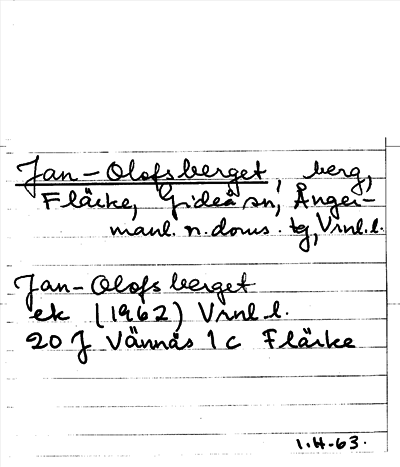 Jan-Olofsberget, berg,
Fläcke, Gideå sn, Ånger-
manl. n. doms. tg, Vrnl. l.
Jan-Olofsberget
ek (1962) Vrnl. l.
20 J Vännäs 1 c Fläcke
1.H.63.